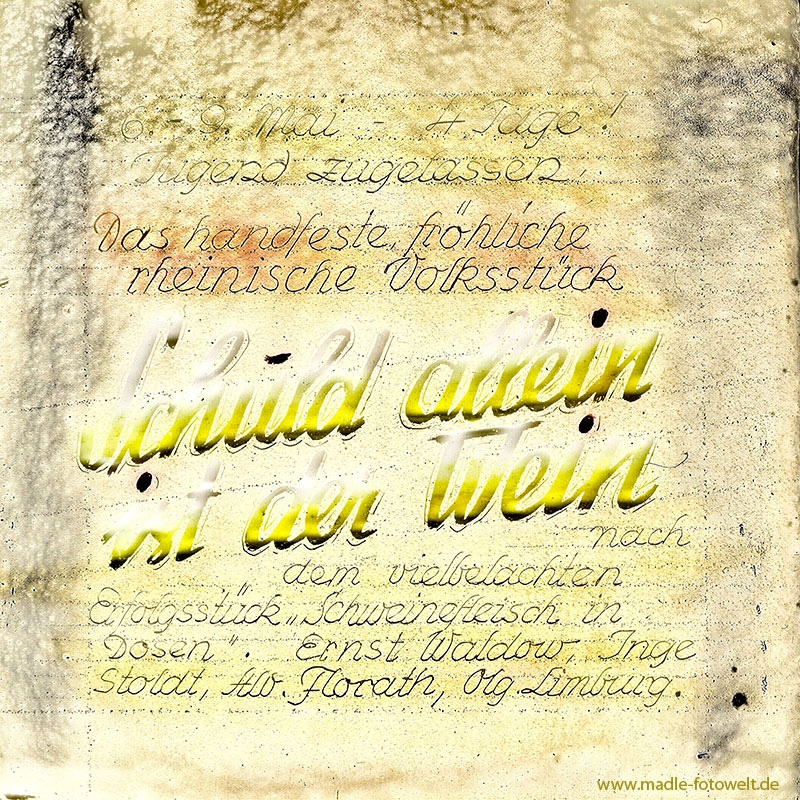 6. - 9. Mai - 4 Tage!
Jugend zugelassen.
Das handfeste, fröhliche
rheinische Volksstück
Schuld allein
ist der Wein
nach
dem vielbelachten
Erfolgsstück „Schweinefleisch in
Dosen". Ernst Waldow, Inge
Stoldt, Alw. Florath, Olg. Limburg.
www.madle-fotowelt.de